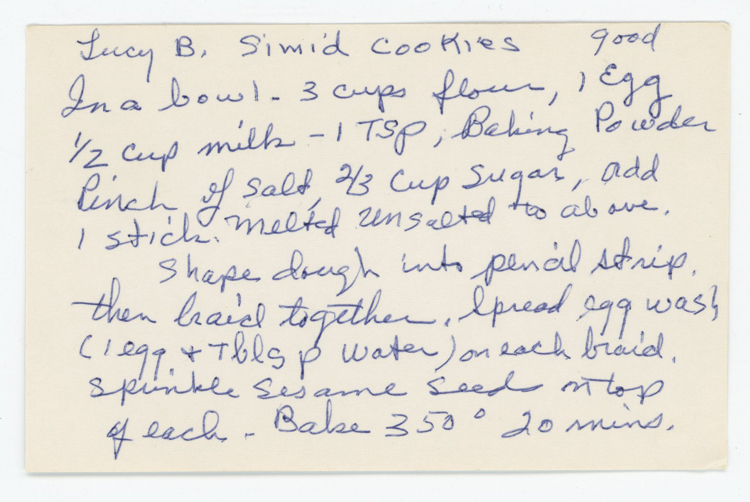 Lucy B. Simid Cookies good
In a bowl - 3 cups flour, 1 Egg
1/2 cup milk - 1 TSP, Baking Powder
Pinch of Salt, 2/3 Cup Sugar, add
1 stick. Melted Unsalted to above.
Shape dough into pencil strip.
then braid together. Spread egg wash
(1 egg + Tblsp water) on each braid.
Sprinkle Sesame Seeds on top
of each - Bake 350° 20 mins.